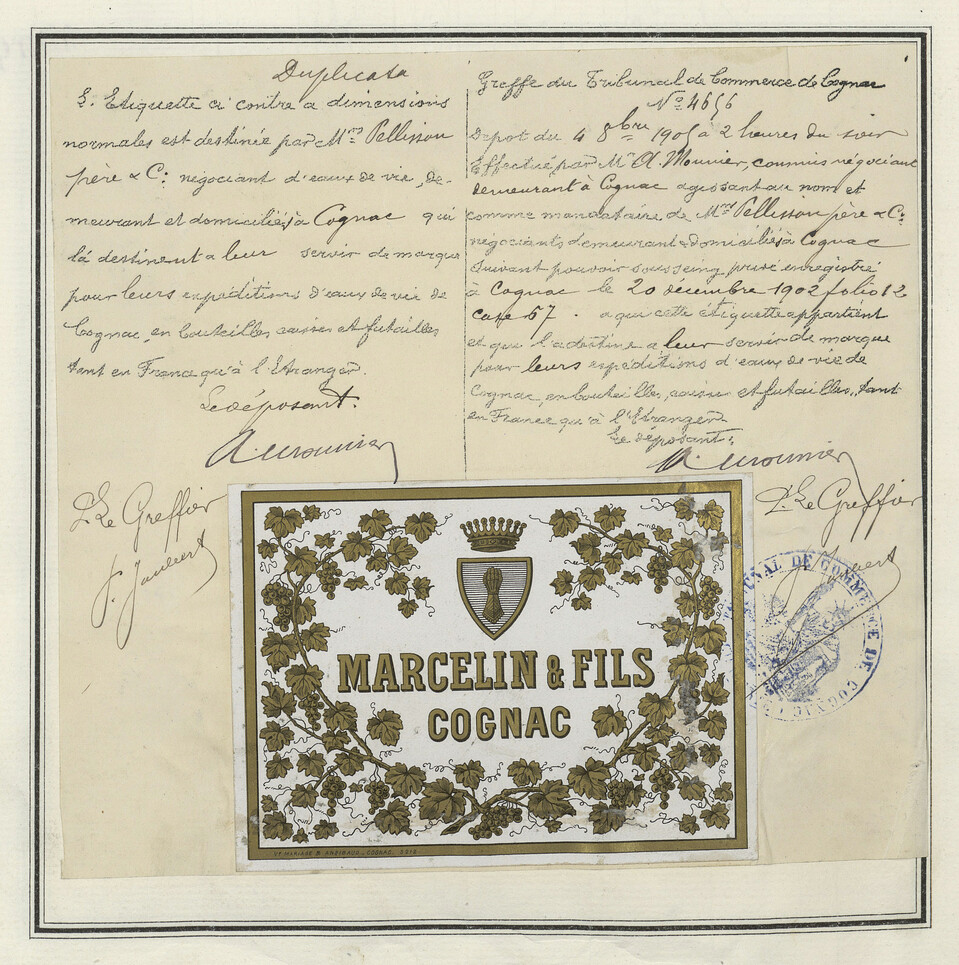 Duplicata
L'Etiquette ci contre a dimensions
normales est destinée par Mrs Pellisson
père & Cie négociant d'eaux de vie, de-
meurant et domiciliés à Cognac qui
la destinent a leur servir de marque
pour leurs expéditions d'eaux de vie de
Cognac, en bouteilles caisses et futailles
tant en France qu'à l'Etranger.
Le déposant.
A. Mounier
P. Le Greffier
Greffe du Tribunal de Commerce de Cognac
No 4656
Depot du 4 8bre 1905 à 2 heures du soir
Effectué par Mr A. Mounier, commis négociant
demeurant à Cognac agissant au nom et
comme mandataire de Mrs Pellisson père & Cie
négociants demeurant & domiciliés à Cognac
suivant pouvoir sous seing privé enregistré
à Cognac le 20 décembre 1902 folio 12
Case 67. a qui cette étiquette appartient
et qui l'a destine a leur servir de marque
pour leurs expéditions d'eaux de vie de
Cognac, en bouteilles, caisses et futailles, tant
en France qu'à l'Etranger
Le déposant:
A. Mounier
P. Le Greffier
TRIBUNAL DE COMMERCE DE COGNAC
MARCELIN & FILS
COGNAC
COGNAC.